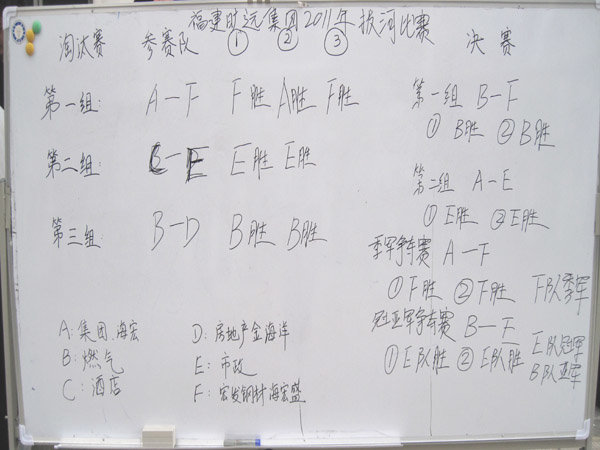 福建时远集团2011年拔河比赛
淘汰赛 参赛队 ① ② ③
第一组: A－F F胜 A胜 F胜
第二组: C－E E胜 E胜
第三组: B－D B胜 B胜
A: 集团、海宏
B: 燃气
C: 酒店
D: 房地产金海洋
E: 市政
F: 宏发钢材海宏盛
决赛
第一组 B－F
① B胜 ② B胜
第二组 A－E
① E胜 ② E胜
季军争夺赛 A－F
① F胜 ② F胜 F队季军
冠亚军争夺赛 B－E
① E队胜 ② E队胜 E队冠军
B队亚军